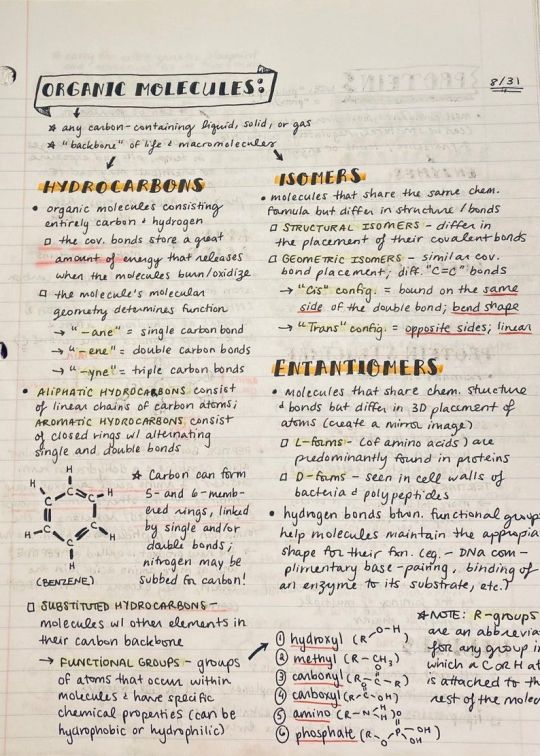 ORGANIC MOLECULES:
8/31
* any carbon-containing liquid, solid, or gas
* "backbone" of life & macromolecules
HYDROCARBONS
• organic molecules consisting
entirely carbon & hydrogen
□ the cov. bonds store a great
amount of energy that releases
when the molecules burn/oxidize
□ the molecule's molecular
geometry determines function
→ "-ane" = single carbon bond
→ "-ene" = double carbon bonds
→ "-yne" = triple carbon bonds
• ALIPHATIC HYDROCARBONS consist
of linear chains of carbon atoms;
AROMATIC HYDROCARBONS consist
of closed rings w/ alternating
single and double bonds
H
H C H
C C
C C
H C H
H
(BENZENE)
* Carbon can form
5- and 6-memb-
ered rings, linked
by single and/or
double bonds;
nitrogen may be
subbed for carbon!
□ SUBSTITUTED HYDROCARBONS -
molecules w/ other elements in
their carbon backbone
→ FUNCTIONAL GROUPS - groups
of atoms that occur within
molecules & have specific
chemical properties (can be
hydrophobic or hydrophilic)
ISOMERS
• molecules that share the same chem.
formula but differ in structure/bonds
□ STRUCTURAL ISOMERS - differ in
the placement of their covalent bonds
□ GEOMETRIC ISOMERS - similar cov.
bond placement; diff. "C=C" bonds
→ "Cis" config. = bound on the same
side of the double bond; bend shape
→ "Trans" config. = opposite sides; linear
ENTANTIOMERS
• molecules that share chem. structure
& bonds but differ in 3D placement of
atoms (create a mirror image)
□ L-forms - (of amino acids) are
predominantly found in proteins
□ D-forms - seen in cell walls of
bacteria & polypeptides
• hydrogen bonds btwn. functional group
help molecules maintain the appropria
shape for their fxn. (eg. - DNA com-
plimentary base-pairing, binding of
an enzyme to its substrate, etc.)
① hydroxyl (R-O-H)
② methyl (R-CH₃)
③ carbonyl (R-C-R)
O
④ carboxyl (R-C-OH)
O
⑤ amino (R-N-H)
H
⑥ phosphate (R-O-P-OH)
O
OH
*NOTE: R-groups
are an abbrevia
for any group in
which a C or H at
is attached to th
rest of the molec